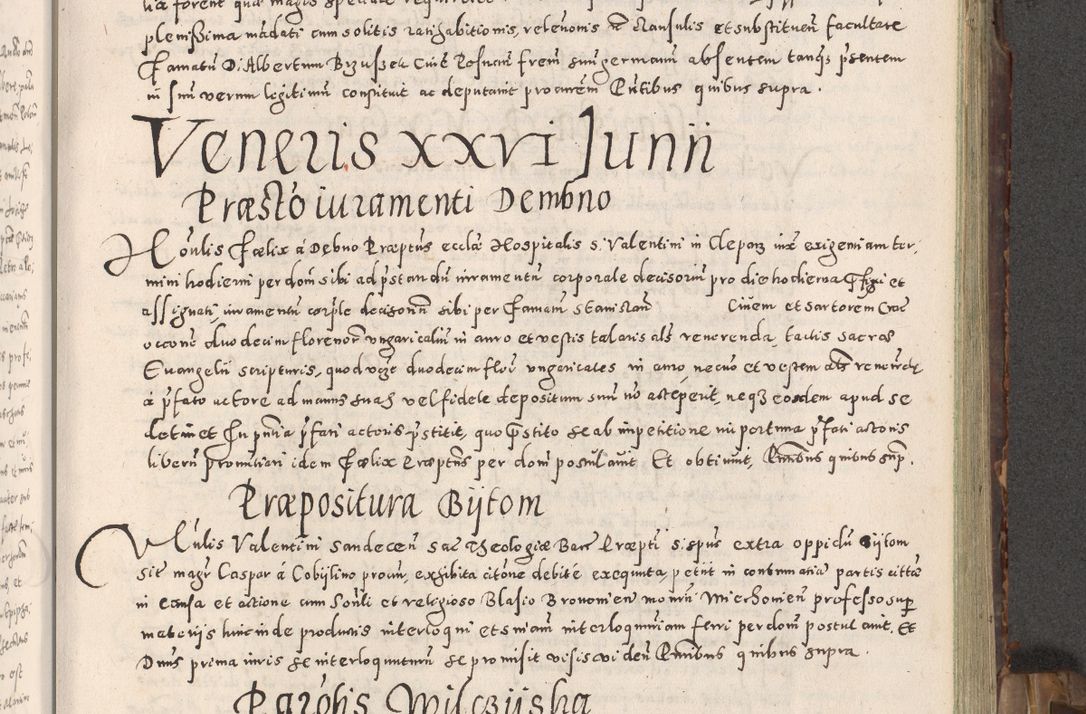 plenissima mãdati cum solitis ratihabitionis, relevonis et clausulis et substituen̄ facultate
Famatū D. Albertum Brzussek Civē Posnan̄ frem̄ suū germanū absentem tanq̄ p̄sentem
in suū verum legitimū constituit ac deputavit procurem̄ Pn̄tibus quibus supra.
Veneris XXVI Junii
Præstō iuramenti Dembno
Honlis Fœlix á Dębno Præptūs ecclā Hospitalis S. Valentini in Cleparz iux̄ exigentiam ter,
mini hodierni per dom̄ sibi ad p̄standū iuramentū corporale decisoriū pro die hodierna et
assignati iuramentū corple decisoriū sibi per Faman̄ Stanislaū Civem et sartorem Crac̄
occone duodecim florenor̄ ungaricaliū in auro et vestis talaris als̄ reverenda, tactis sacros
Evangelii scripturis, quod ucze duodecim flor̄ ungaricales in auro, necnō et vestem als̄ reverēdę,
á p̄fato actore ad manus suas vel fidele depositum suū nō accęperit, neq3 eosdem apud se
detinet In pn̄tia p̄fati actoris p̄stitit, quo p̄stito se ab impetitione p̄fati actoris
liberū pronuntiari idem Fœlix Præptūs per dom̄ postulavit. Et obtinuit, Pn̄tibus quibus sup̄.
Præpositura Bijtom
Vn̄lis Valentini Sandecen̄ Sac̄ Theologiæ Bacc̄ Præpti S. Spūs extra oppidū Bijtom
sit magr̄ Caspar á Cobijlino procur̄, exhibita citōne debitē execquuta, petiit in contumatia partis cittæ
in causa et actione cum Honli et religioso Blasio Bronomien̄ monrii Miechovien̄ professo sup̄
materiis hinc inde productis interloqui et sniam̄ interloquutoriam ferri per dom̄ postulavit. Et
Dnūs prima iuris se interloquuturū se promisit visis viden̄ Pn̄tibus quibus supra.
Parōhs Wilczijska